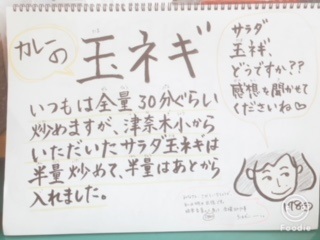 カレーの
玉ネギ
いつもは全量30分ぐらい
炒めますが、津奈木小から
いただいたサラダ玉ネギは
半量炒めて、半量はあとから
入れました。
サラダ
玉ネギ、
どうですか??
感想を聞かせて
くださいね♡
Foodie